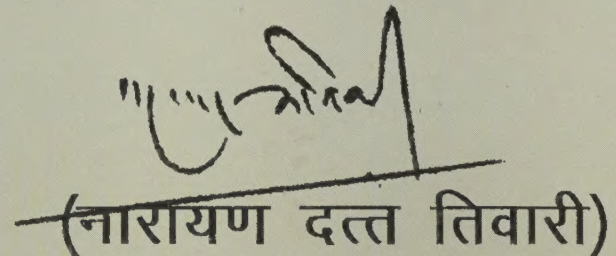 (नारायण दत्त तिवारी)